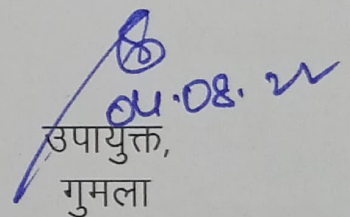 04.08.22
उपायुक्त,
गुमला